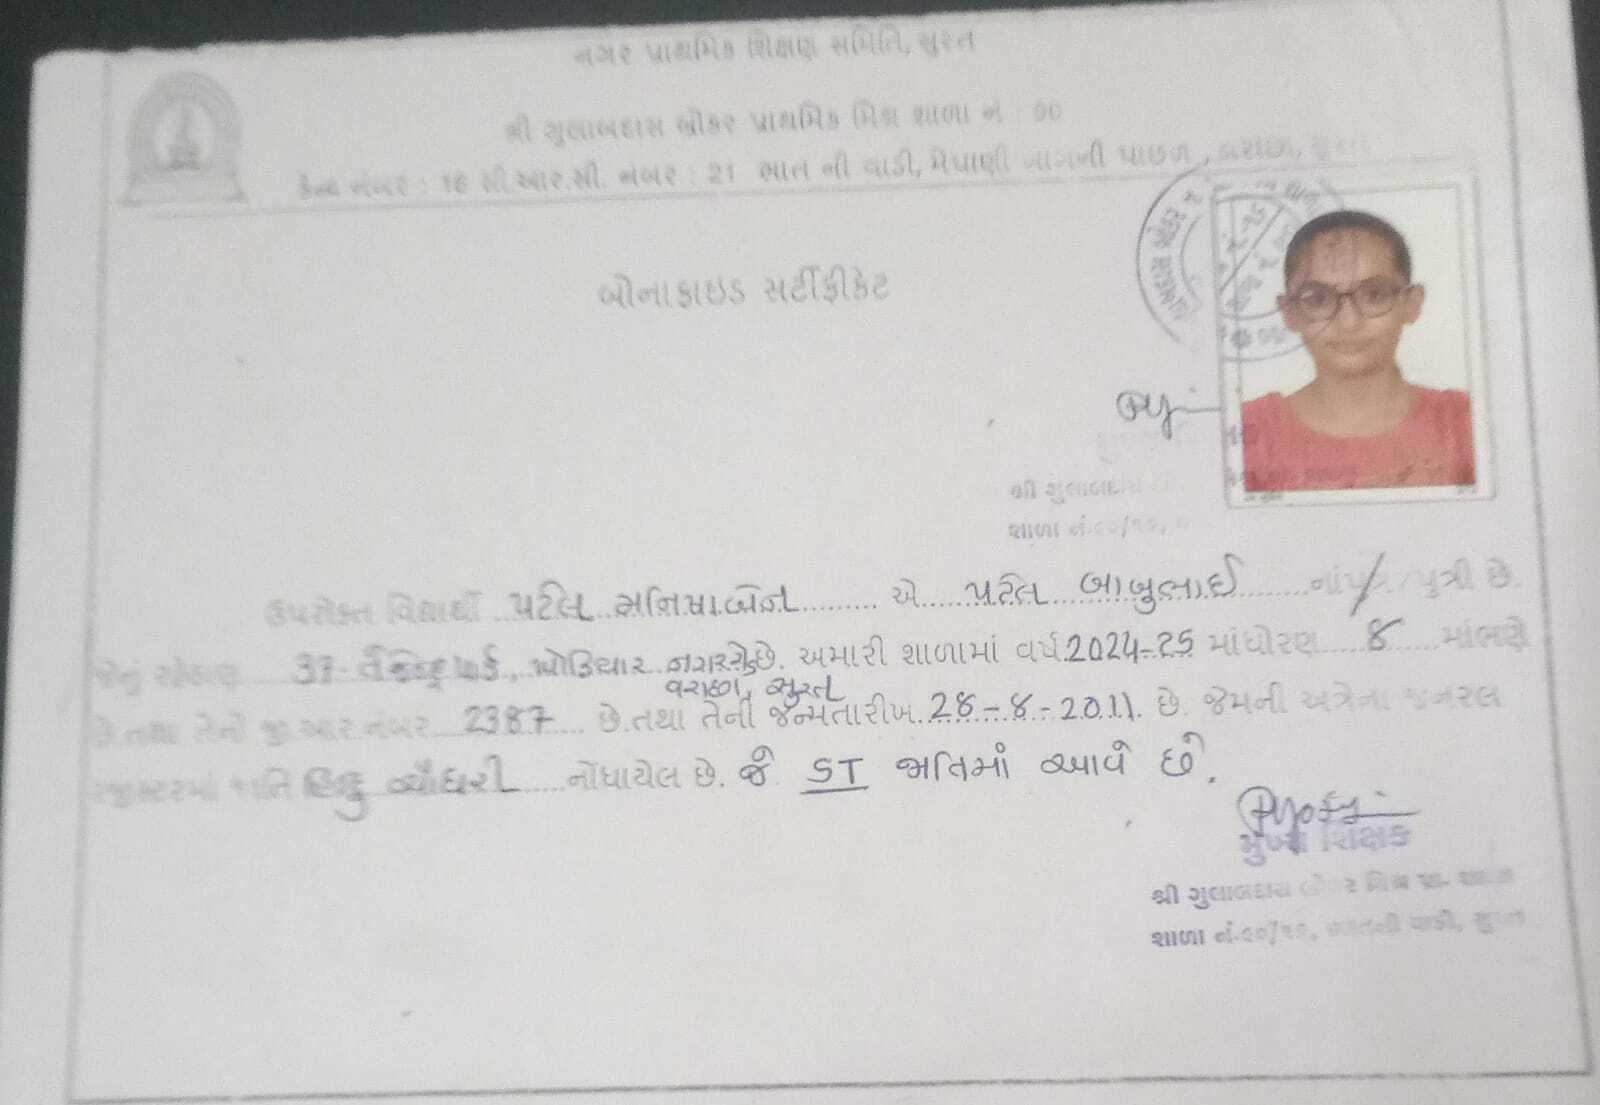 નગર પ્રાથમિક શિક્ષણ સમિતિ, સુરત
શ્રી ગુલાબદાસ બ્રોકર પ્રાથમિક મિશ્ર શાળા નં :
કેન્દ્ર નંબર : 16 સી.આર.સી. નંબર : 21 ભાત ની વાડી, મેપાણી બાગની પાછળ , વરાછા, સુરત
બોનાફાઇડ સર્ટીફીકેટ
શ્રી ગુલાબદાસ
શાળા નં.
ઉપરોક્ત વિદ્યાર્થી પટેલ મનિષાબેન એ પટેલ બાબુભાઈ નાં પુત્ર / પુત્રી છે.
જેનું રહેઠાણ 37- પાર્ક, ખોડિયાર નગર રોડ છે. અમારી શાળામાં વર્ષ 2024-25 માં ધોરણ 8 માં ભણે
વરાછા, સુરત
છે. તથા તેનો જી.આર.નંબર 2387 છે. તથા તેની જન્મતારીખ 28-8-2011 છે. જેમની અત્રેના જનરલ
રજીસ્ટરમાં જાતિ હિન્દુ ચૌધરી નોંધાયેલ છે. જે ST જાતિમાં આવે છે.
મુખ્ય શિક્ષક
શ્રી ગુલાબદાસ બ્રોકર મિશ્ર પ્રા. શાળા
શાળા નં. ભાતની વાડી, સુરત